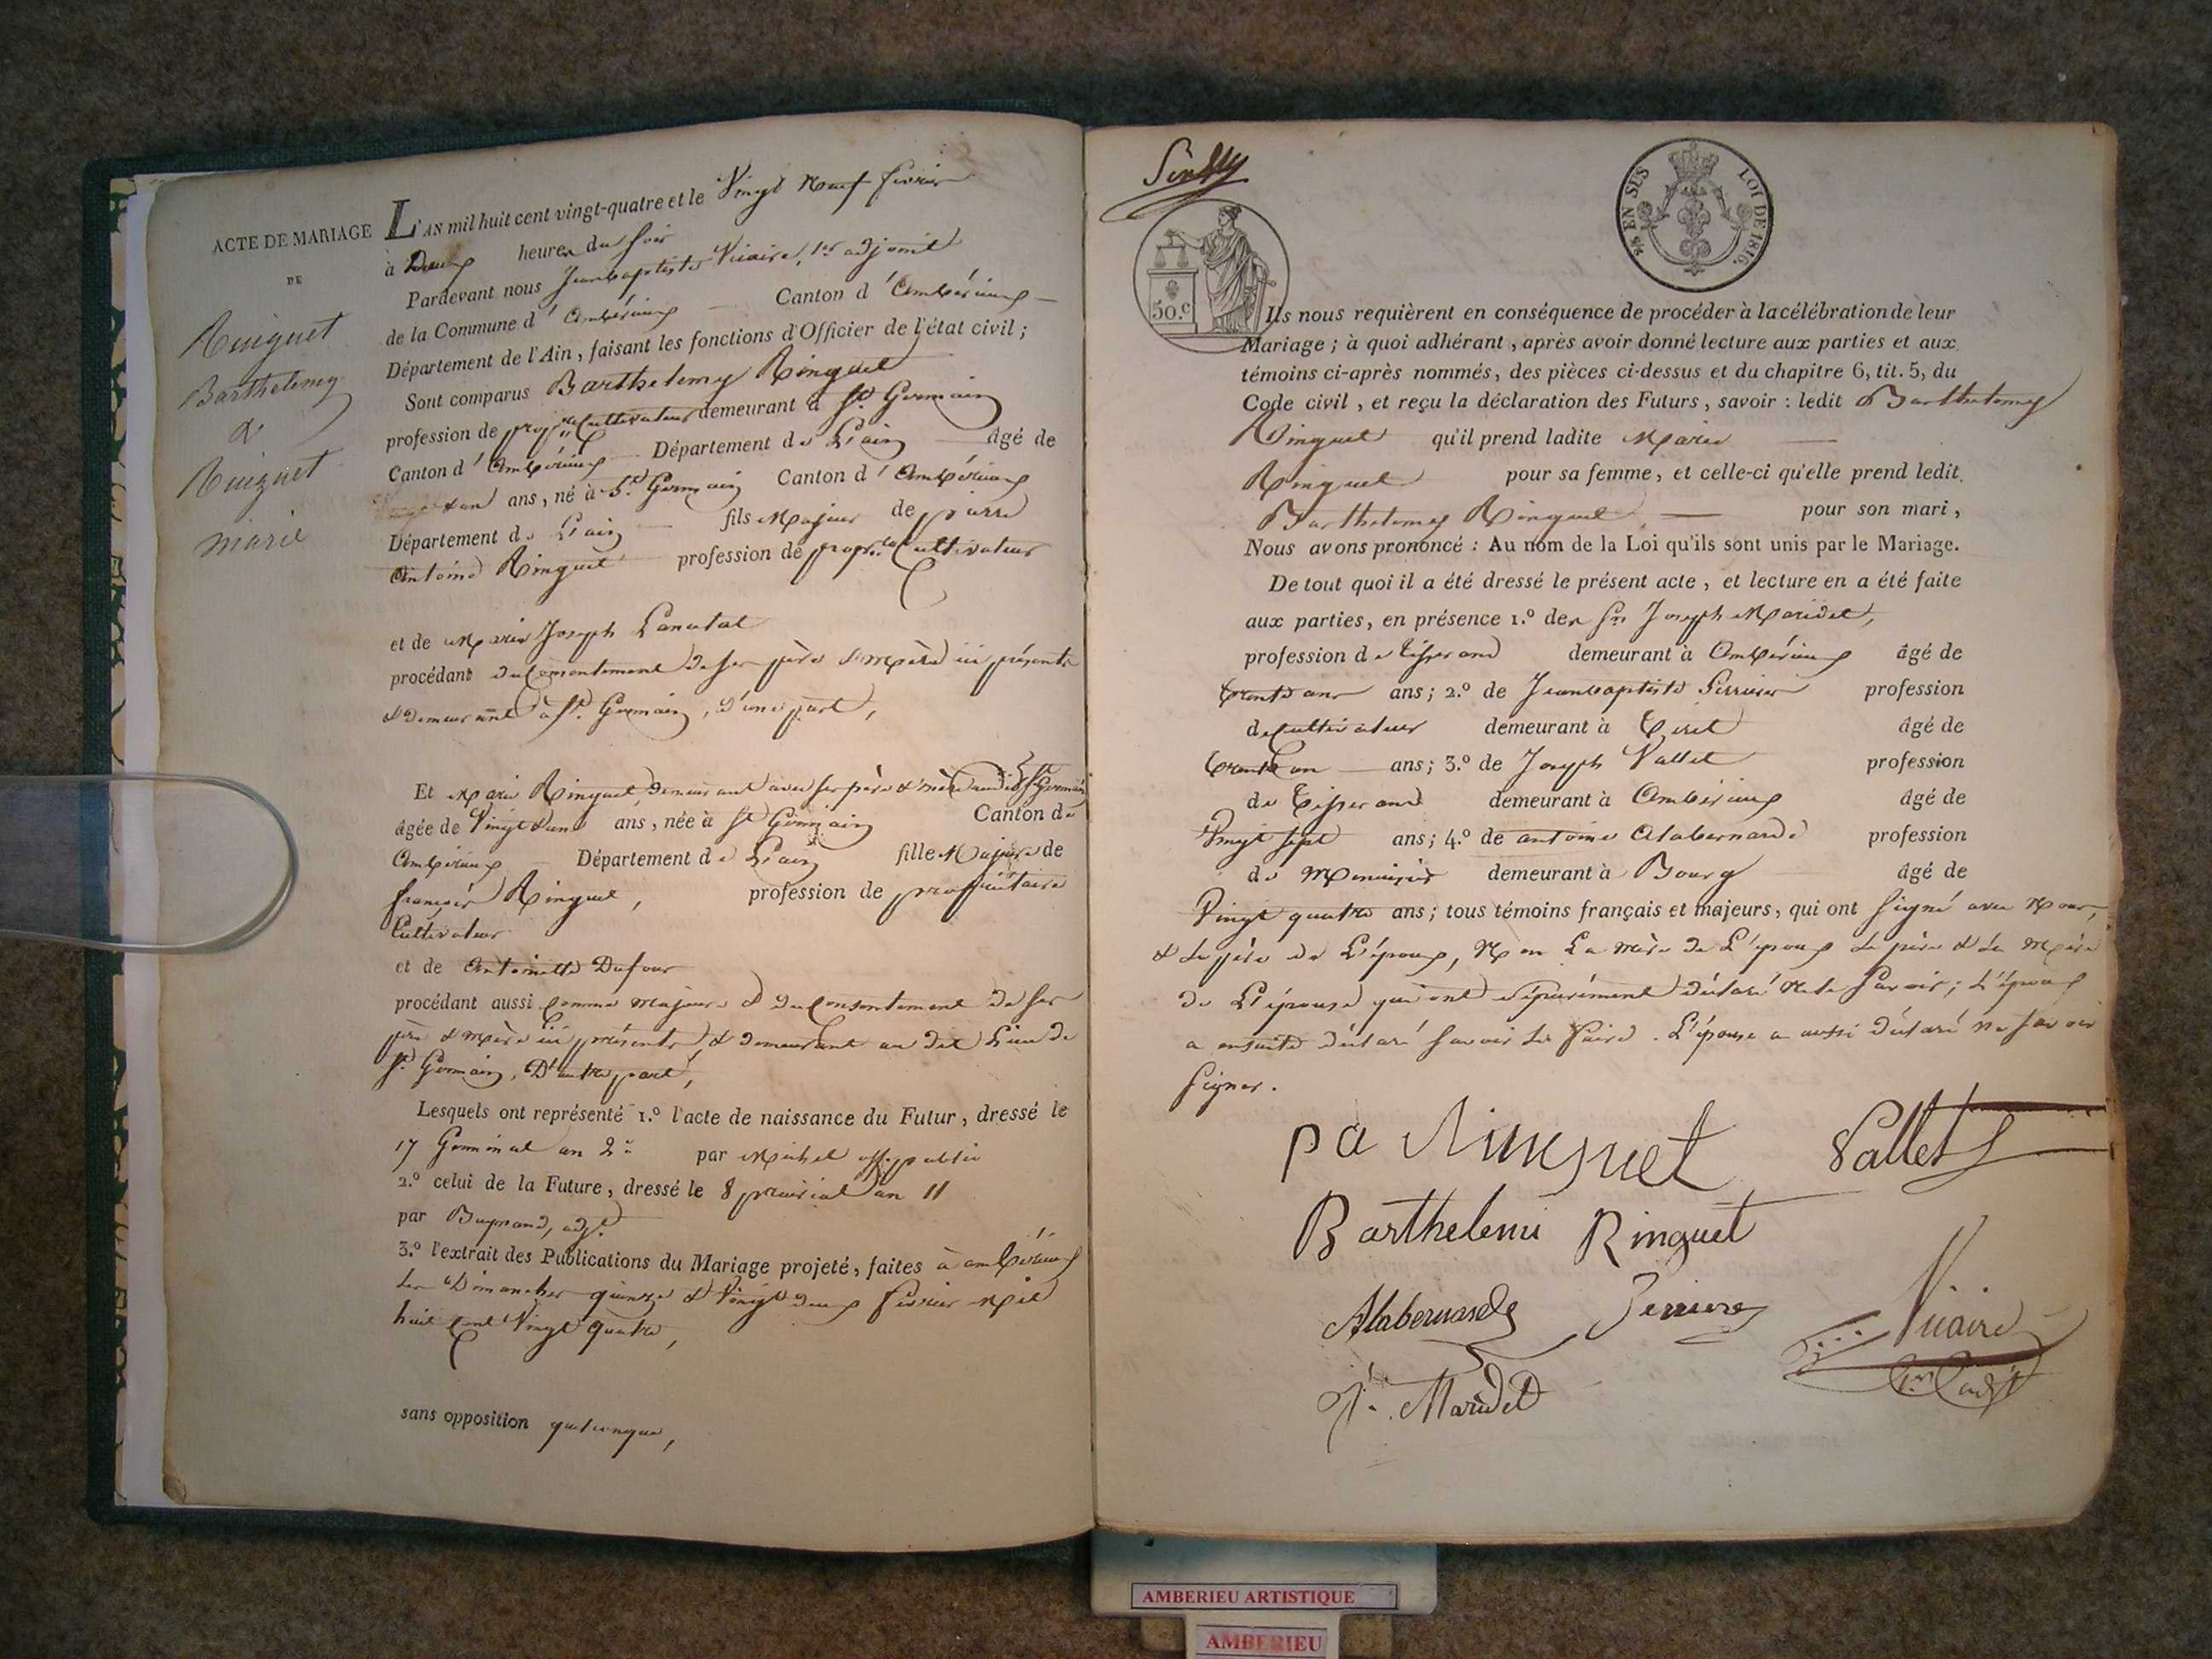 ACTE DE MARIAGE
DE
Ringuet
Barthelemy
&
Ringuet
marie
L'AN mil huit cent vingt-quatre et le Vingt Neuf fevrier
à Deux heures du soir
Pardevant nous Jeanbaptiste Vicaire, 1er adjoint
de la Commune d'Ambérieux Canton d'Ambérieux
Département de l'Ain, faisant les fonctions d'Officier de l'état civil;
Sont comparus Barthelemy Ringuet
profession de propre Cultivateur demeurant à St Germain
Canton d'Ambérieux Département de L'ain âgé de
&un ans, né à St Germain Canton d'Ambérieux
Département de L'ain fils Majeur de pierre
Antoine Ringuet profession de propre Cultivateur
et de Marie Joseph Lanatal
procédant du Consentement de ses père & mère ici présents
& demeurant à St Germain, d'une part,
Et Marie Ringuet, demeurant avec ses père & mère audit St Germain
âgée de Vingt &une ans, née à St Germain Canton de
Ambérieux Département de L'ain fille Majeure de
françois Ringuet, profession de propriétaire
Cultivateur
et de Antoinette Dufour
procédant aussi Comme majeure & du Consentement de ses
père & mère ici présents, & demeurant au dit Lieu de
St Germain, D'autre part,
Lesquels ont représenté 1.º l'acte de naissance du Futur, dressé le
17 Germinal an 2e par Michel off. public
2.º celui de la Future, dressé le 8 prairial an 11
par adjt
3.º l'extrait des Publications du Mariage projeté, faites à ambérieux
Les Dimanches quinze & Vingt deux fevrier Mil
huit Cent Vingt quatre,
sans opposition quelconque,
50.c
EN SES
LOI DE 1816.
Ils nous requièrent en conséquence de procéder à la célébration de leur
Mariage; à quoi adhérant, après avoir donné lecture aux parties et aux
témoins ci-après nommés, des pièces ci-dessus et du chapitre 6, tit. 5, du
Code civil, et reçu la déclaration des Futurs, savoir: ledit Barthelemy
Ringuet qu'il prend ladite Marie
Ringuet pour sa femme, et celle-ci qu'elle prend ledit
Barthelemy Ringuet, pour son mari,
Nous avons prononcé: Au nom de la Loi qu'ils sont unis par le Mariage.
De tout quoi il a été dressé le présent acte, et lecture en a été faite
aux parties, en présence 1.º des Srs Joseph Maridet,
profession de tisserand demeurant à Ambérieux âgé de
trente ans ans; 2.º de Jeanbaptiste Perrier profession
de Cultivateur demeurant à Tiret âgé de
trente un ans; 3.º de Joseph Vallet profession
de tisserand demeurant à Ambérieux âgé de
Vingt sept ans; 4.º de antoine Alabernarde profession
de Menuisier demeurant à Bourg âgé de
Vingt quatre ans; tous témoins français et majeurs, qui ont signé avec Nous,
& Le père de L'époux, Non La mère de L'époux Le père & La mère
de L'épouse qui ont séparément déclaré Ne le savoir; L'époux
a ensuite déclaré savoir Le faire. L'épouse a aussi déclaré ne savoir
signer.
pa Ringuet
Vallet
Barthelemi Ringuet
Alabernarde
Perrier
Vicaire
1er adjt
Jh. Maridet
AMBERIEU ARTISTIQUE
AMBERIEU